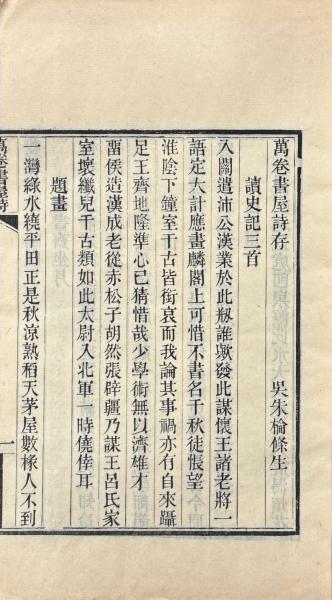 萬卷書屋詩存
吳朱檢條生
讀史記三首
入關遣沛公漢業於此剏誰歟發此謀懷王諸老將一
語定大計應畫麟閣上可惜不書名千秋徒悵望
淮陰下鐘室千古皆銜哀而我論其事禍亦有自來躡
足王齊地隆準心已猜惜哉少學術無以濟雄才
畱侯造漢成老從赤松子胡然張辟疆乃謀王呂氏家
室壞纖兒千古類如此太尉入北軍一時僥倖耳
題畫
一灣綠水繞平田正是秋涼熟稻天茅屋數椽人不到
萬卷書屋詩
一